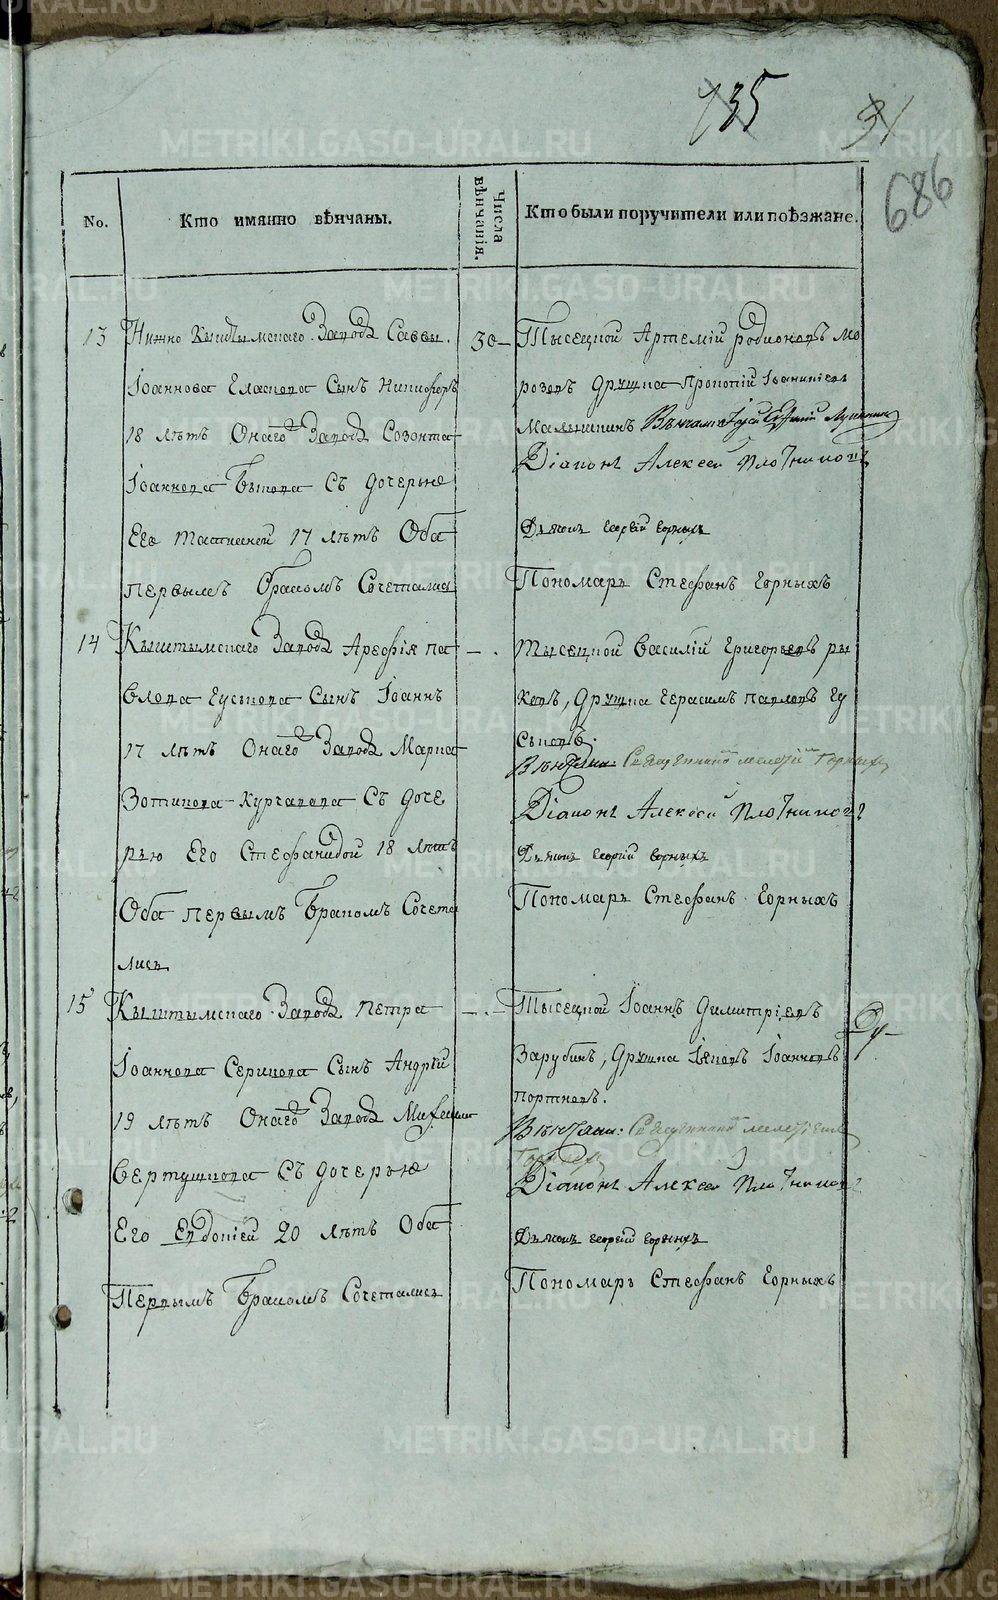 METRIKI.GASO-URAL.RU
135
31
686
No.
Кто имянно вѣнчаны.
Числа вѣнчанія.
Кто были поручители или поѣзжане.
13 Нижно Кыштымскаго Завода Саввы
Іоаннова сынъ Никифоръ
18 лѣтъ Онаго Завода Созонта
Іоаннова съ дочерью
Его Татианой 17 лѣтъ Оба
первымъ бракомъ Сочетались
30
Тысецкой Артемій родионовъ мо
розовъ Дружка Прокопій
Діаконъ Алексей Плотниковъ
Дьячокъ георгій горныхъ
Пономарь Стефанъ Горныхъ
14 Кыштымскаго Завода Арефія па
влова Гуськова Сынъ Іоаннъ
17 лѣтъ Онаго Завода Марка
Зотикова Курчатова Съ доче
рью Его Стефанидой 18 лѣтъ
Оба первымъ бракомъ Сочета
лись
Тысецкой Василій Григорьевъ ры
ковъ, Дружка Герасимъ павловъ Гу
съковъ.
Вѣнчали: Священникъ мелетій Горныхъ
Діаконъ Алексей Плотниковъ
Дьячокъ георгий горныхъ
Пономарь Стефанъ Горныхъ
15 Кыштымскаго Завода Петра
Іоаннова Серикова Сынъ Андрей
19 лѣтъ Онаго Завода
Вертушкова Съ дочерью
Его Евдокіей 20 лѣтъ Оба
Первымъ бракомъ Сочетались
Тысецкой Іоаннъ Димитріевъ
Зарубинъ, Дружка Іаковъ Іоанновъ
портновъ.
Вѣнчали: Священникъ мелетій
Горныхъ
Діаконъ Алексей Плотниковъ
Дьячокъ георгий горныхъ
Пономарь Стефанъ Горныхъ